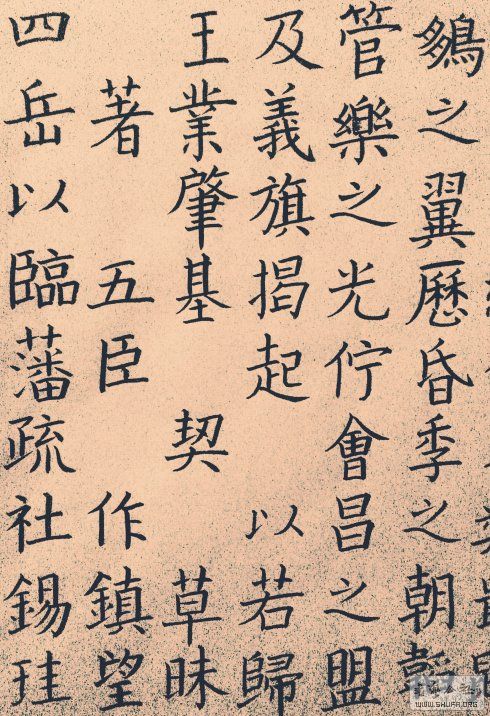 之翼歷昏季之朝韜
管樂之光佇會昌之盟
及義旗揭起 以若歸
王業肇基 契 草昧
著 五臣 作鎮望
四岳以臨藩疏社錫珪
WWW.SHUFA.ORG